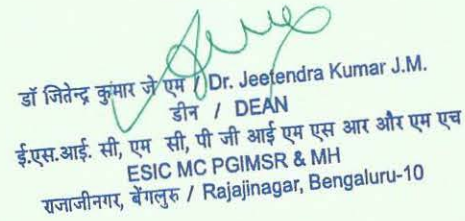 डॉ जितेन्द्र कुमार जे एम / Dr. Jeetendra Kumar J.M.
डीन / DEAN
ई.एस.आई. सी, एम सी, पी जी आई एम एस आर और एम एच
ESIC MC PGIMSR & MH
राजाजीनगर, बेंगलुरु / Rajajinagar, Bengaluru-10